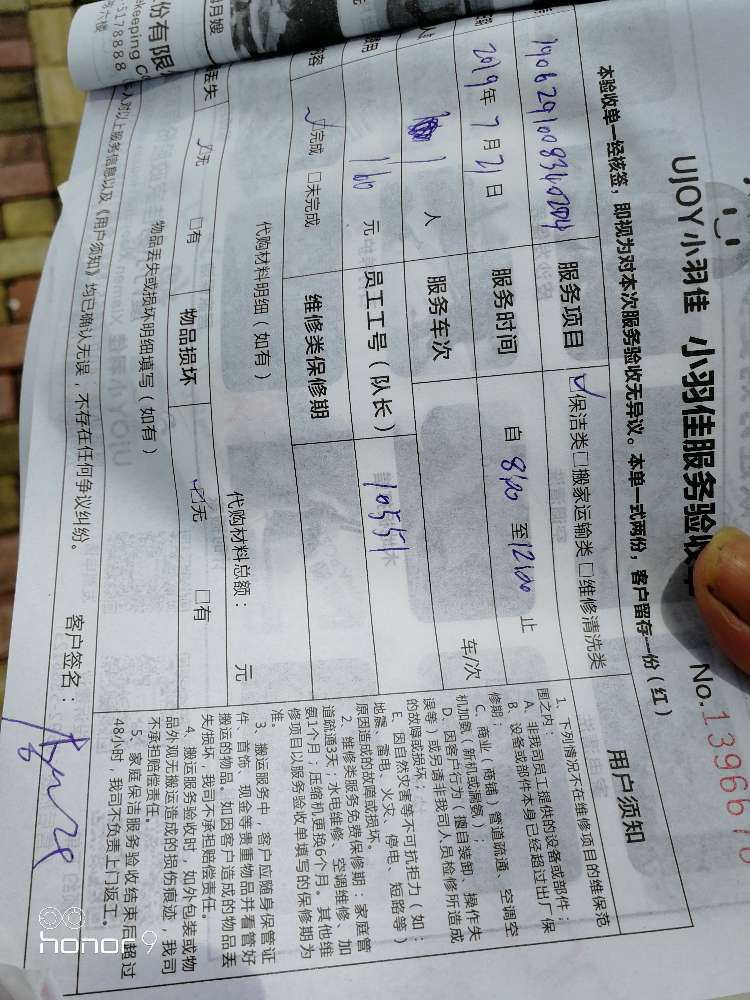 份有限
keeping Co
5178888
月嫂
UJOY 小羽佳 小羽佳服务验收
No.
139667
本验收单一经核签，即视为对本次服务验收无异议。本单一式两份，客户留存一份（红）
服务项目 ☑保洁类□搬家运输类□维修清洗类
2019年7月21日 服务时间 自 8:00 至 12:00 止
1 人 服务车次 车/次
160 元 员工工号（队长） 10551
☑完成 □未完成 维修类保修期
代购材料明细（如有） 代购材料总额： 元
丢失 ☑无 □有 物品损坏 ☑无 □有
物品丢失或损坏明细填写（如有）
人对以上服务信息以及《用户须知》均已确认无误，不存在任何争议纠纷。
客户签名：
用户须知
1、下列情况不在维修项目的维保范
围之内：
A、非我司员工提供的设备或部件；
B、设备或部件本身已经超过出厂保
修期；
C、商业（商铺）管道疏通、空调空
机加氨（新机或漏氨）；
D、因客户行为（擅自装卸、操作失
误等）或另请非我司人员检修所造成
的故障或损坏；
E、因自然灾害等不可抗拒力（如：
地震、雷电、火灾、停电、短路等）
原因造成的故障或损坏。
2、维修类服务免费保修期：家庭管
道疏通3天；水电维修、空调维修、加
氨1个月；压缩机更换6个月。其他维
修项目以服务验收单填写的保修期为
准。
3、搬运服务中，客户应随身保管证
件、首饰、现金等贵重物品并看管好
搬运的物品。如因客户造成的物品丢
失/损坏，我司不承担赔偿责任。
4、搬运服务验收时，如外包装或物
品外观无搬运造成的损伤痕迹，我司
不承担赔偿责任。
5、家庭保洁服务验收结束后超过
48小时，我司不负责上门返工。
honor 9